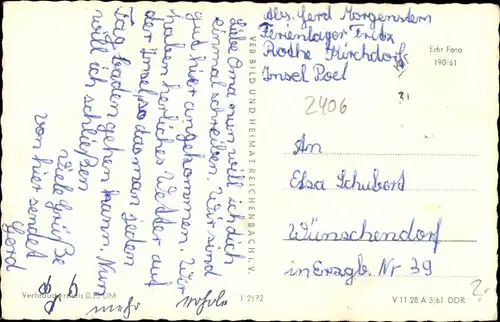 Abs. Gerd Morgenstern
Ferienlager Fritz
Rothe Kirchdorf
Insel Poel
Echt Foto
190/61
2406
An
Elsa Schubert
Wünschendorf
in Erzgb. Nr 39
Liebe Oma nun will ich dich
einmal schreiben. Wir sind
gut hier angekommen. Wir
haben herliches Wetter auf
der Insel, so das man jeden
Tag baden gehen kann. Nun
will ich schließen
Viele Grüße
von hier sendet
Gerd
mehr
VEB BILD UND HEIMAT REICHENBACH I. V.
Verbraucherpreis 0.15 DM
1 2172
V 11 28 A 3/61 DDR